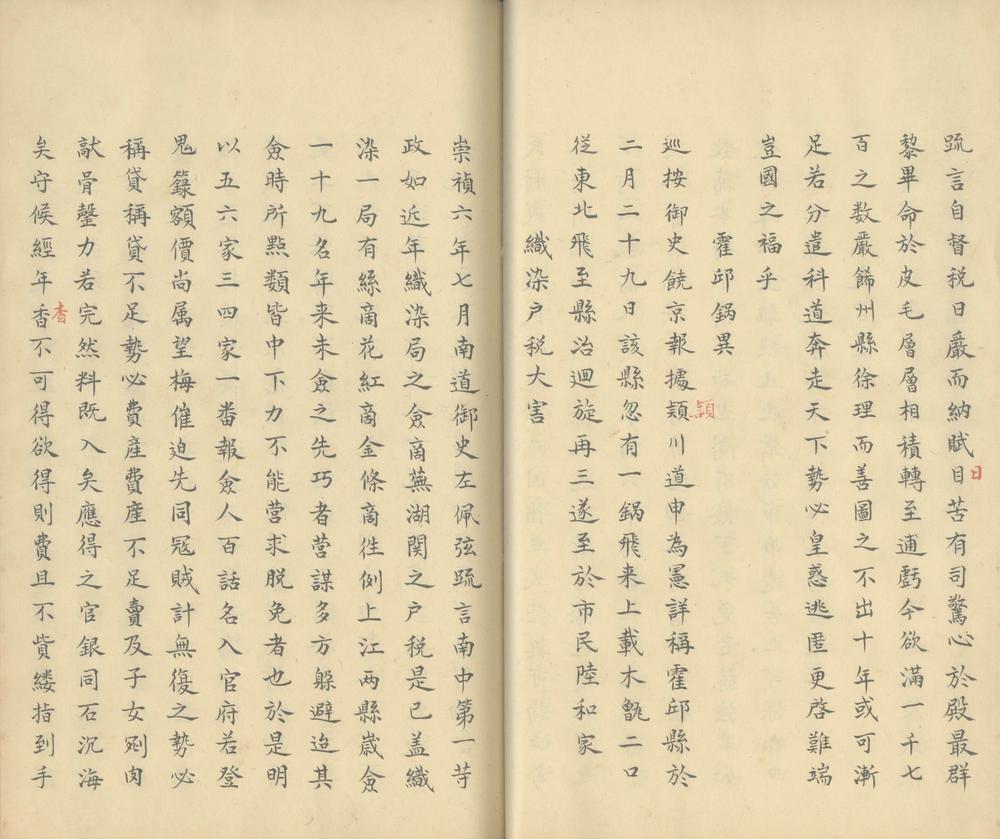 疏言自督税日嚴而納賦目苦有司驚心於殿最群
日
黎畢命於皮毛層層相積轉至逋虧今欲滿一千七
百之數嚴餙州縣徐理而善圖之不出十年或可漸
足若分遣科道奔走天下勢必皇惑逃匿更啓難端
豈國之福乎
霍邱鍋異
巡按御史饒京報據頴川道申為愚詳稱霍邱縣於
潁
二月二十九日該縣忽有一鍋飛来上載木甑二口
從東北飛至縣治迴旋再三遂至於市民陸和家
織染户税大害
崇禎六年七月南道御史左佩弦疏言南中第一苛
政如近年織染局之僉商蕪湖関之户税是已盖織
染一局有絲商花紅商金條商徃例上江两縣歲僉
一十九名年来未僉之先巧者营謀多方躲避迨其
僉時所㸃類皆中下力不能营求脱免者也於是明
以五六家三四家一畨報僉人百話名入官府若登
鬼籙額價尚属望梅催迫先同冦賊計無復之勢必
稱貸稱貸不足勢必費産費産不足賣及子女剜肉
敲骨罄力若完然料既入矣應得之官銀同石沉海
矣守候經年香不可得欲得則費且不貲縷指到手
杳